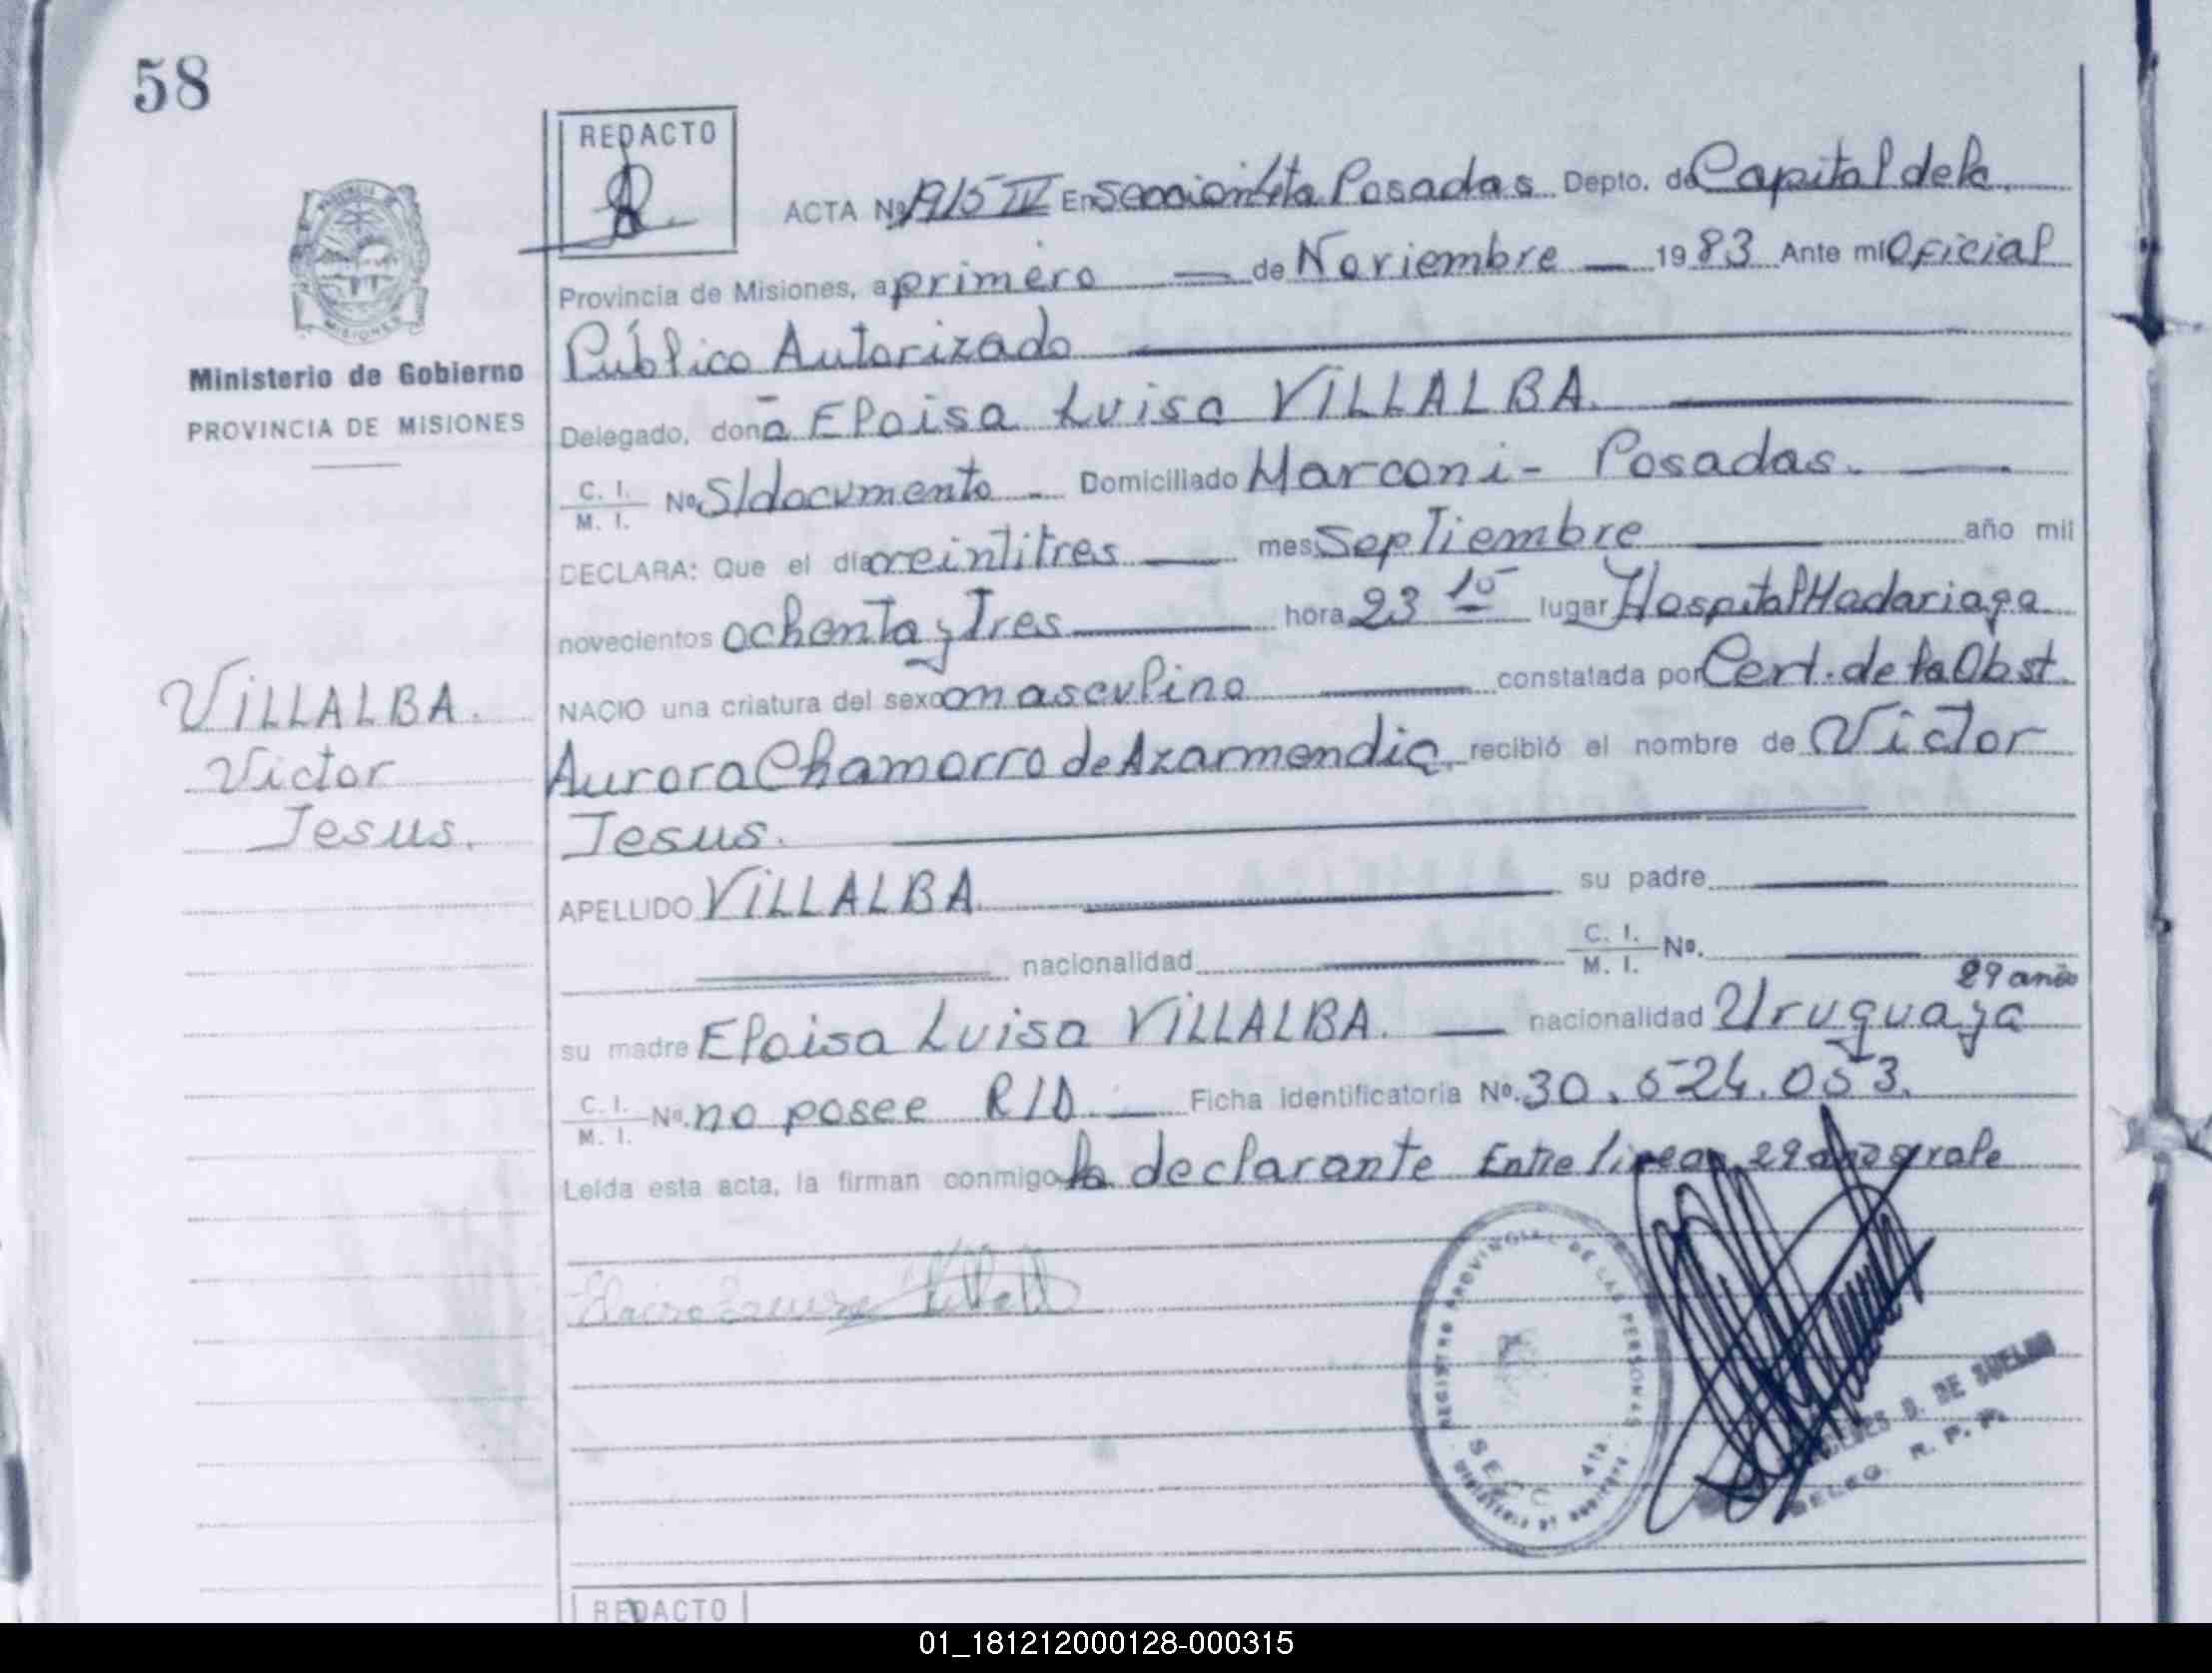 58
REDACTO
ACTA Nº 1915 IV En Seccion 4ta Posadas Depto. de Capital de la
Provincia de Misiones, a primero de Noviembre 1983 Ante mi Oficial
Público Autorizado
Delegado, doña Eloisa Luisa VILLALBA.
C. I.
M. I. Nº S/documento Domiciliado Marconi - Posadas.
DECLARA: Que el día veintitres mes Septiembre año mil
novecientos ochenta y Tres hora 23 10 lugar Hospital Madariaga
NACIO una criatura del sexo masculino constatada por Cert. de la Obst.
Aurora Chamorro de Azarmendia recibió el nombre de Victor
Jesus.
APELLIDO VILLALBA su padre
nacionalidad C. I.
M. I. Nº.
29 años
su madre Eloisa Luisa VILLALBA. nacionalidad Uruguaya
C. I.
M. I. Nº. no posee R/D. Ficha identificatoria Nº. 30.524.053.
Leída esta acta, la firman conmigo la declarante Entre lineas 29 años vale
MISIONES
Ministerio de Gobierno
PROVINCIA DE MISIONES
VILLALBA.
Victor
Jesus.
REGISTRO PROVINCIAL DE LAS PERSONAS
SECC. 4ta.
D. DE
DELEG. R. P. P.
REDACTO
01_181212000128-000315